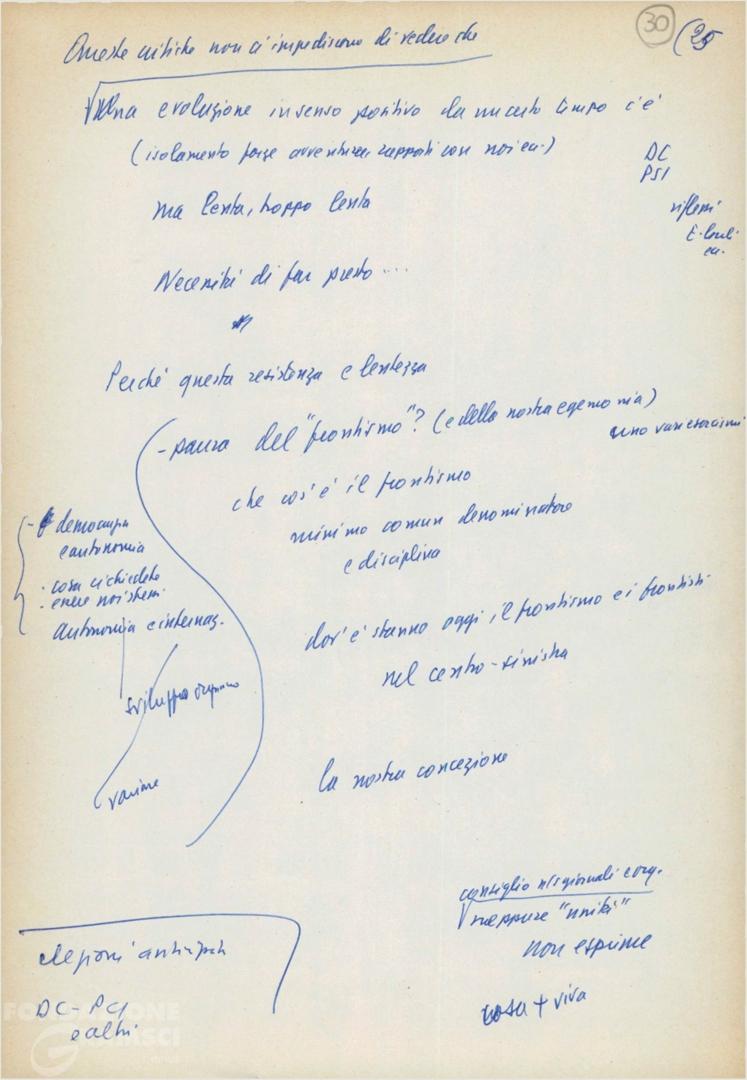 30
(25
Queste critiche non ci impediscono di vedere che
Una evoluzione in senso positivo da un certo tempo c'è
(isolamento forze avventura, rapporti con noi ecc.)
DC
PSI
ma lenta, troppo lenta
riflessi
E. locali
ecc.
Necessità di far presto ...
Perché questa resistenza e lentezza
- paura del "frontismo"? (e della nostra egemonia)
uno vari esorcismi
che cos'è il frontismo
minimo comun denominatore
e disciplina
- democrazia
e autonomia
- cosa ci chiedete
- essere noi stessi
autonomia e internaz.
dov'è stanno oggi il frontismo e i frontisti
nel centro-sinistra
sviluppo
la nostra concezione
consiglio
neppure "unità"
non esprime
cosa + viva
elezioni anticipate
DC - PCI
e altri
FONDAZIONE
GRAMSCI